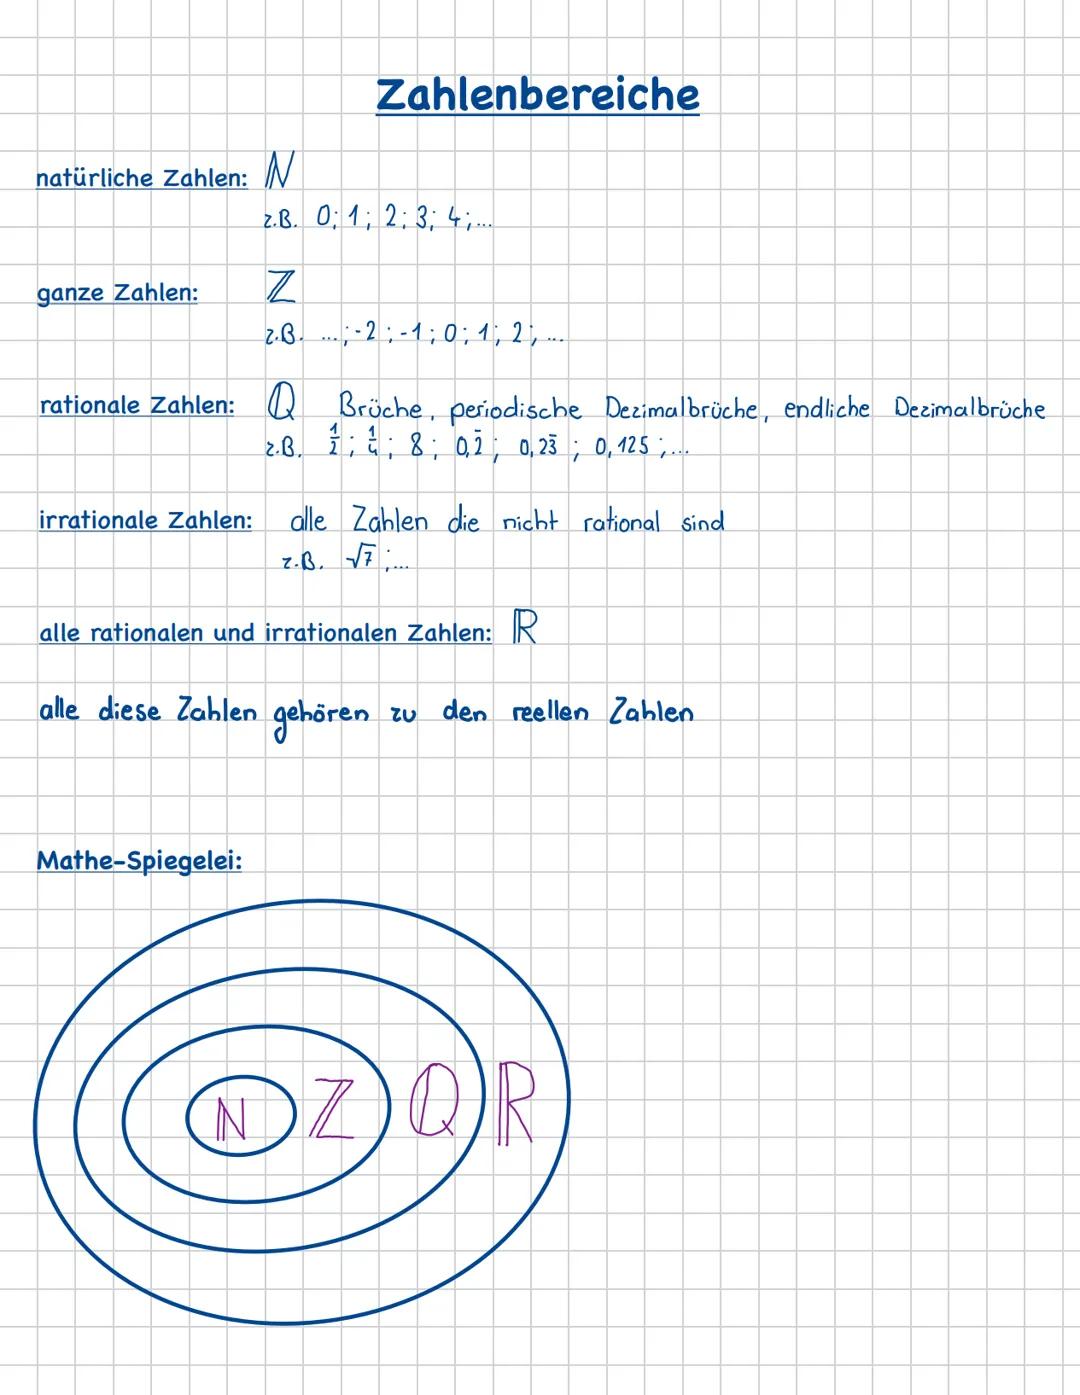 Zahlenbereiche
natürliche Zahlen: ℕ
z.B. 0; 1; 2; 3; 4;...
ganze Zahlen: ℤ
z.B. ...;-2;-1;0;1;2;...
rationale Zahlen: ℚ Brüche, periodische Dezimalbrüche, endliche Dezimalbrüche
z.B. 1/2; 1/4; 8; 0,2̅; 0,23̅; 0,125;...
irrationale Zahlen: alle Zahlen die nicht rational sind
z.B. √7;...
alle rationalen und irrationalen Zahlen: ℝ
alle diese Zahlen gehören zu den reellen Zahlen
Mathe-Spiegelei:
ℕ ℤ ℚ ℝ